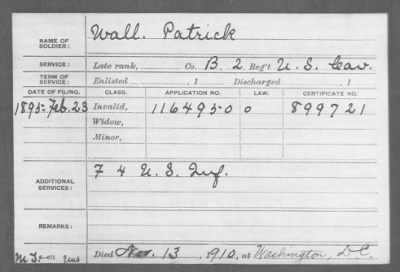 NAME OF SOLDIER: Wall. Patrick
SERVICE: Late rank, Co. B. 2 Reg't U. S. Cav.
TERM OF SERVICE: Enlisted , 1 Discharged , 1
DATE OF FILING. CLASS. APPLICATION NO. LAW. CERTIFICATE NO.
1895-Feb. 23 Invalid, 1164950 0 899721
Widow,
Minor,
ADDITIONAL SERVICES: F 4 U. S. Inf.
REMARKS:
Died 13, 1910, at Washington, D.C.